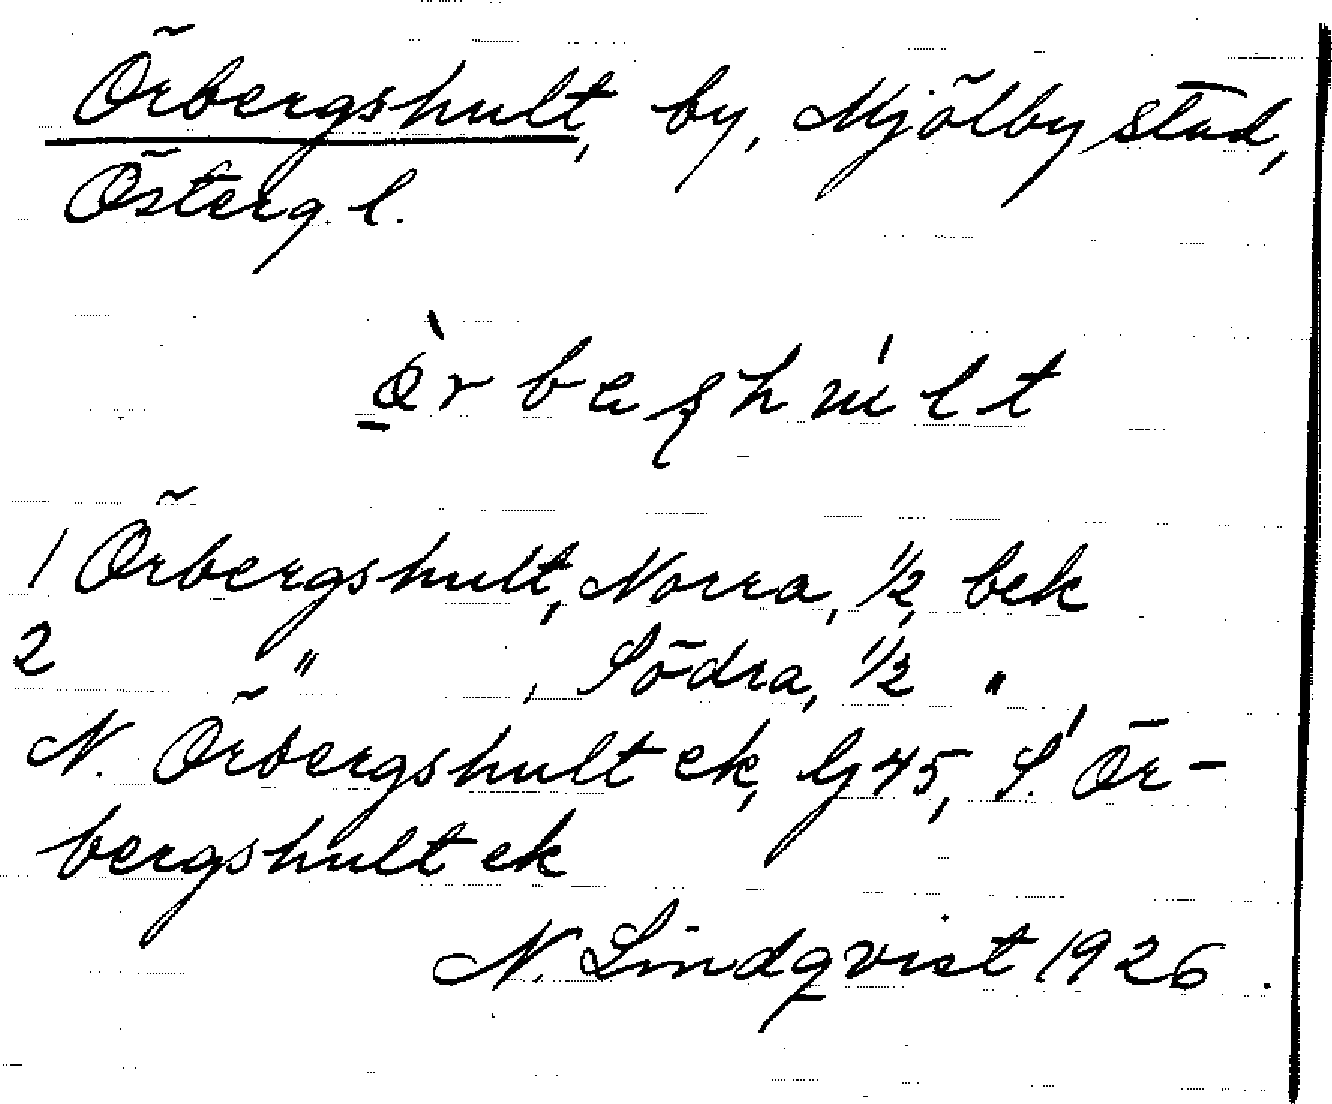 Örbergshult, by, Mjölby stad,
Österg l.
1 Örbergshult, Norra, 1/2, bek
2 " , Södra, 1/2 "
N. Örbergshult ek, lj 45, S. Ör-
bergshult ek
N. Lindqvist 1926.